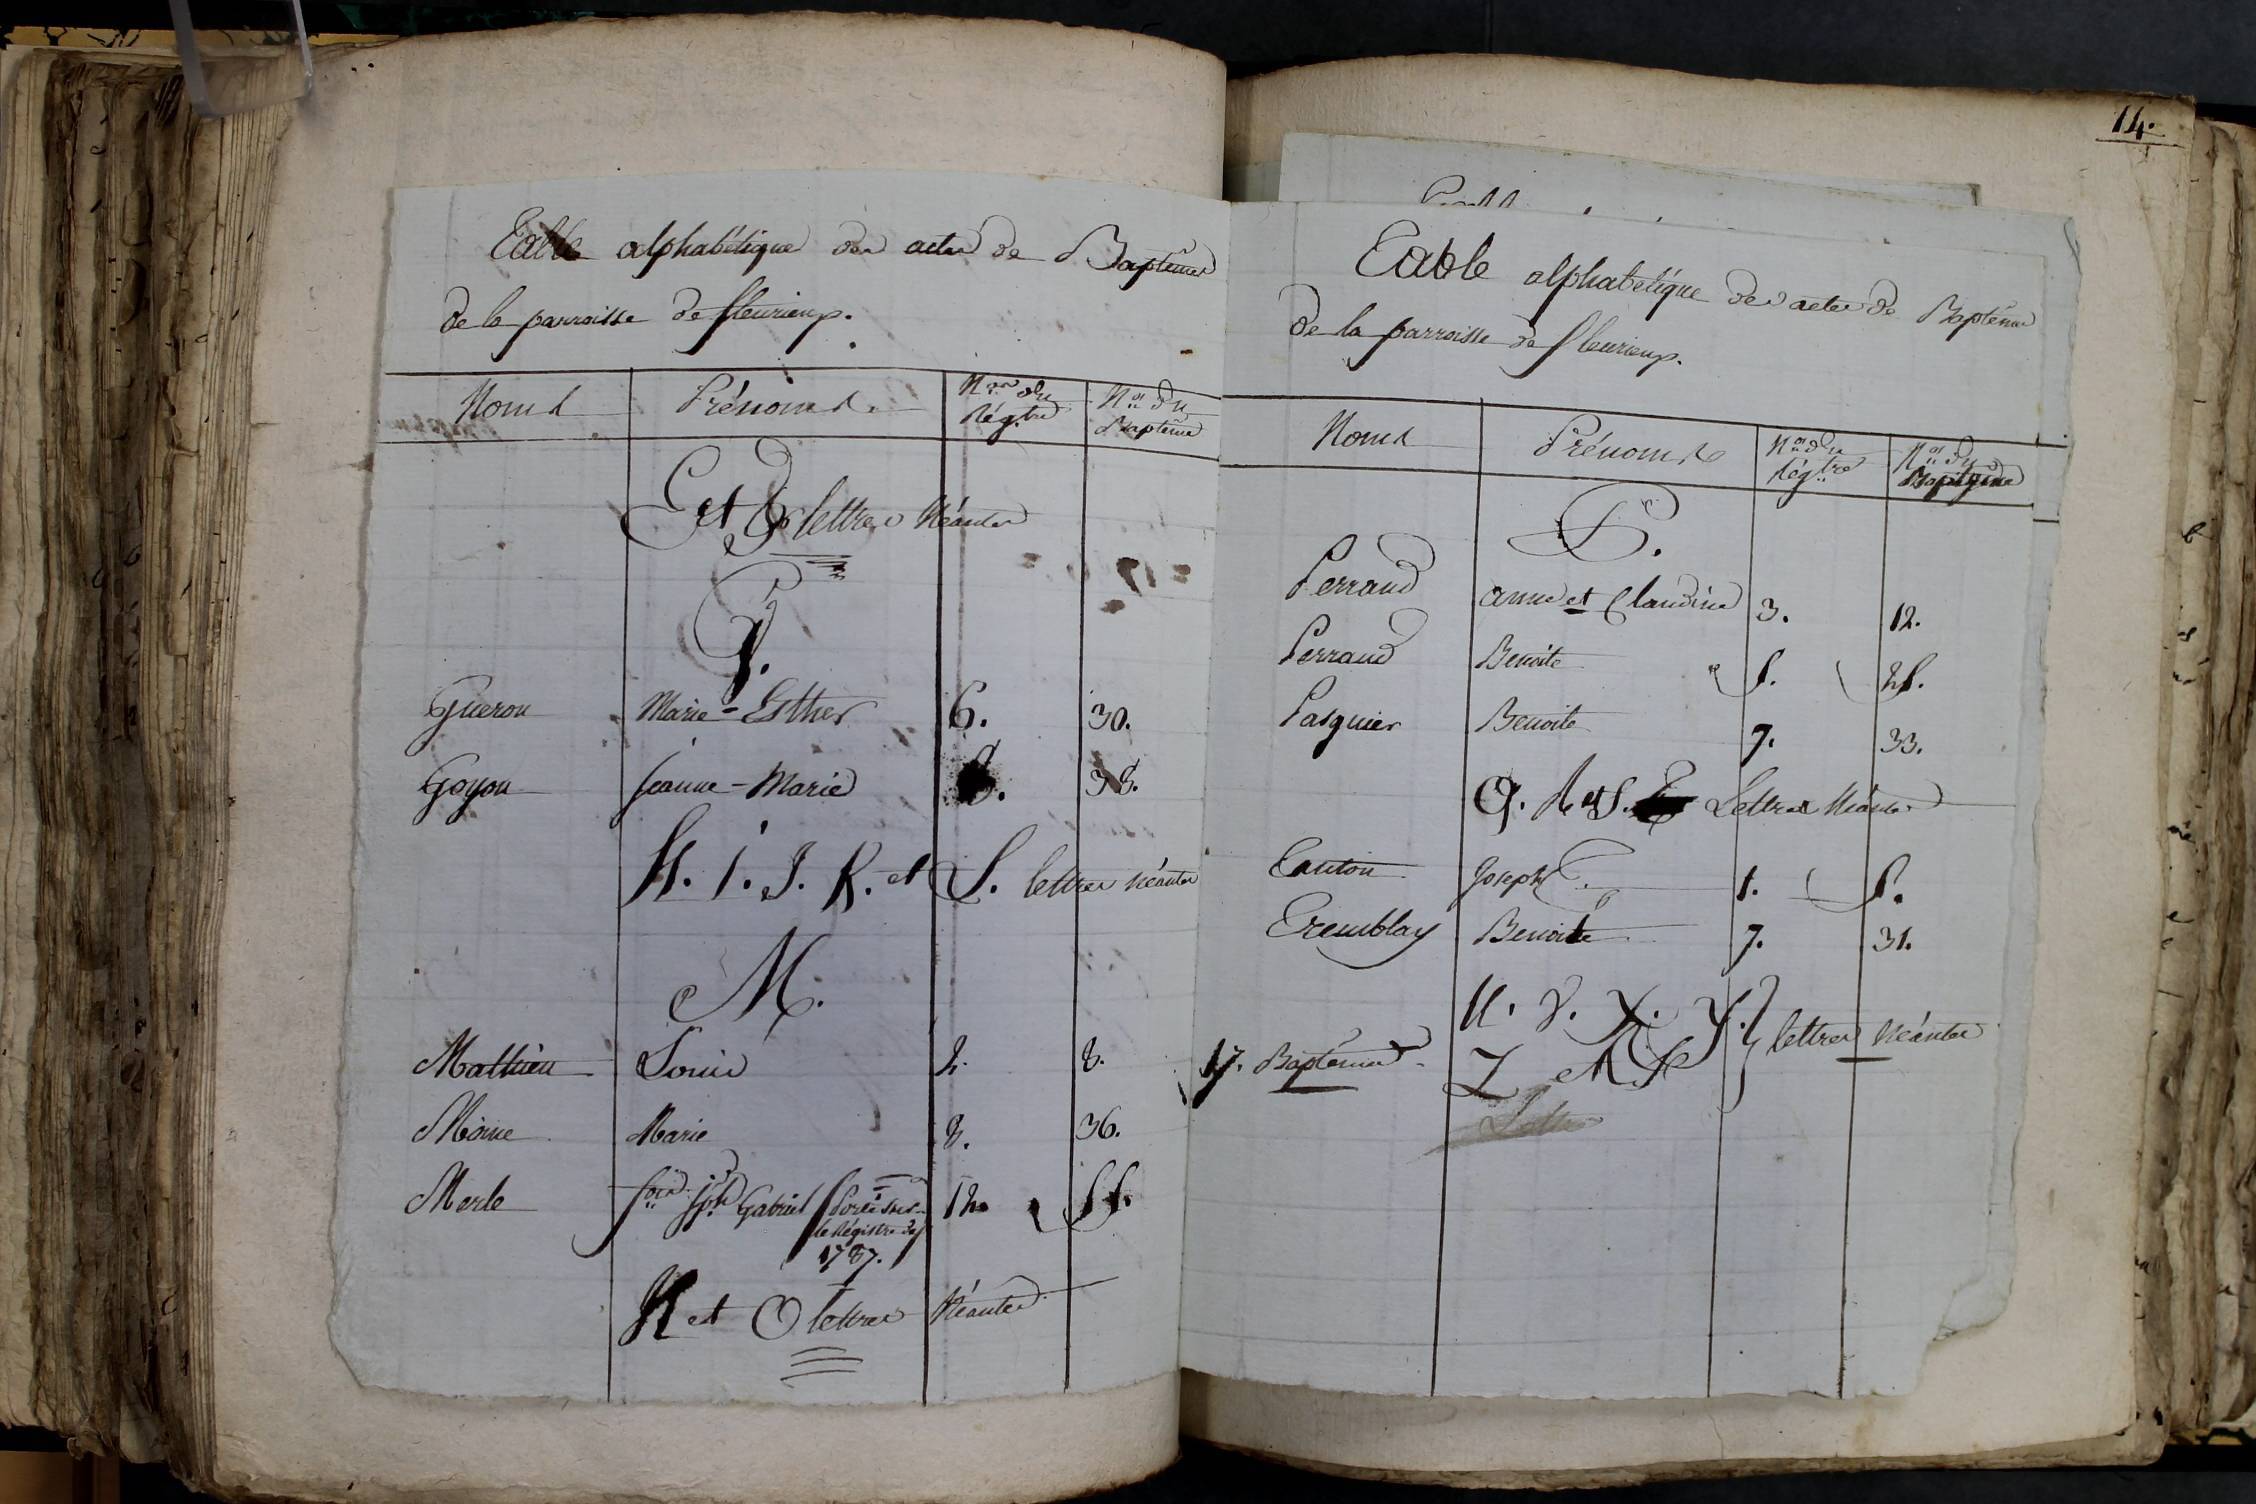 Table alphabétique des actes de Baptêmes
de la parroisse de fleurieux.
Noms Prénoms Nos du Régtre Nos du Baptême
E et F lettres Néantes
G.
Gueron Marie-Esther 6. 30.
Goyon Jeanne-Marie 8. 38.
H. I. J. K. et L. lettres néantes
M.
Mathieu Louis 2. 8.
Moine Marie 8. 36.
Merle fois Jph Gabriel 12. 55.
Porté sur
le Régistre de
1787.
N et O lettres Néantes
14.
Table alphabetique des actes de Baptêmes
de la parroisse de fleurieux.
Noms Prénoms Nos du Régtre Nos du Baptême
P.
Perraud anne et Claudine 3. 12.
Perraud Benoite 5. 25.
Pasquier Benoite 7. 33.
Q. R et S. Lettres Néantes
Tanton Joseph 1. 5.
Tremblay Benoite 7. 31.
U. V. X. Y. lettres Néantes
17. Baptêmes Z